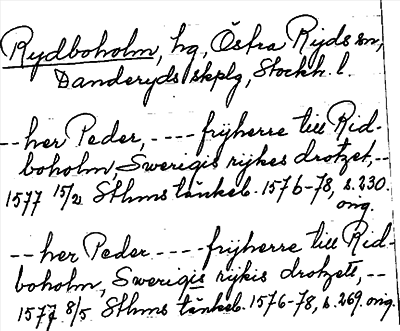 Rydboholm, hg, Östra Ryds sn,
Danderyds skplg, Stockh. l.
-- her Peder, ---- frijherre till Rid-
boholm, Swerigis rijkes drotzet, --
1577 15/2 Sthms tänkeb. 1576-78, s. 230.
orig.
-- her Peder ---- frijherre till Rid-
boholm, Swerigis rijkis drotzett, --
1577 8/5 Sthms tänkeb. 1576-78, s. 269. orig.